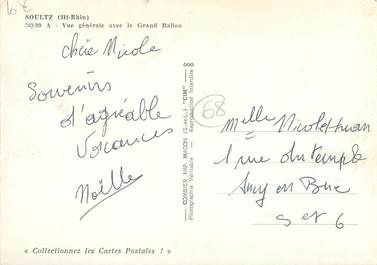 10 €
SOULTZ (Ht-Rhin)
A - Vue générale avec le Grand Ballon
chère Nicole
Souvenirs
d'agréable
Vacances
Noëlle
COMBIER IMP. MACON (S.-et-L.) "CIM"
Photographie Véritable - Reproduction Interdite
68
Melle Nicole
1 rue du temple
Sucy en Brie
S et
« Collectionnez les Cartes Postales ! »